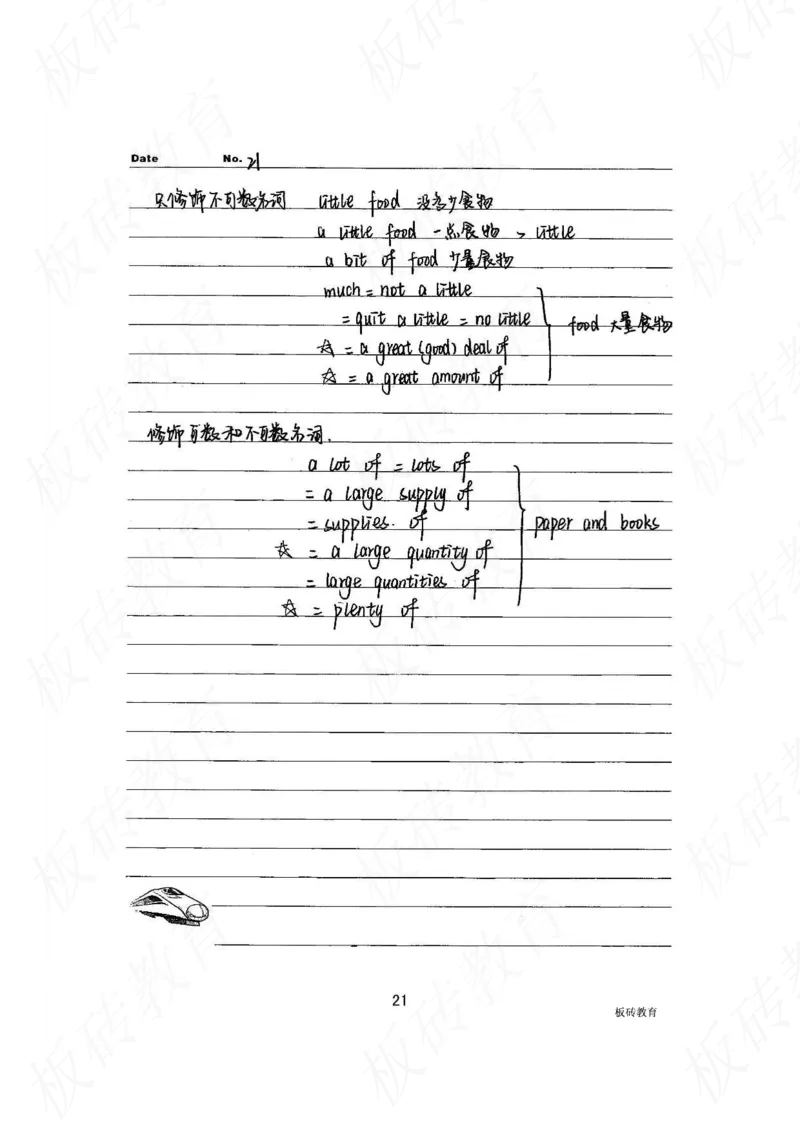 Date No. 21
只修饰不可数名词 little food 没多少食物
a little food 一点食物 > little
a bit of food 少量食物
much = not a little
= quit a little = no little food 大量食物
☆ = a great (good) deal of
☆ = a great amount of
修饰可数和不可数名词.
a lot of = lots of
= a large supply of
= supplies. of paper and books
☆ = a large quantity of
= large quantities of
☆ = plenty of
21
板砖教育